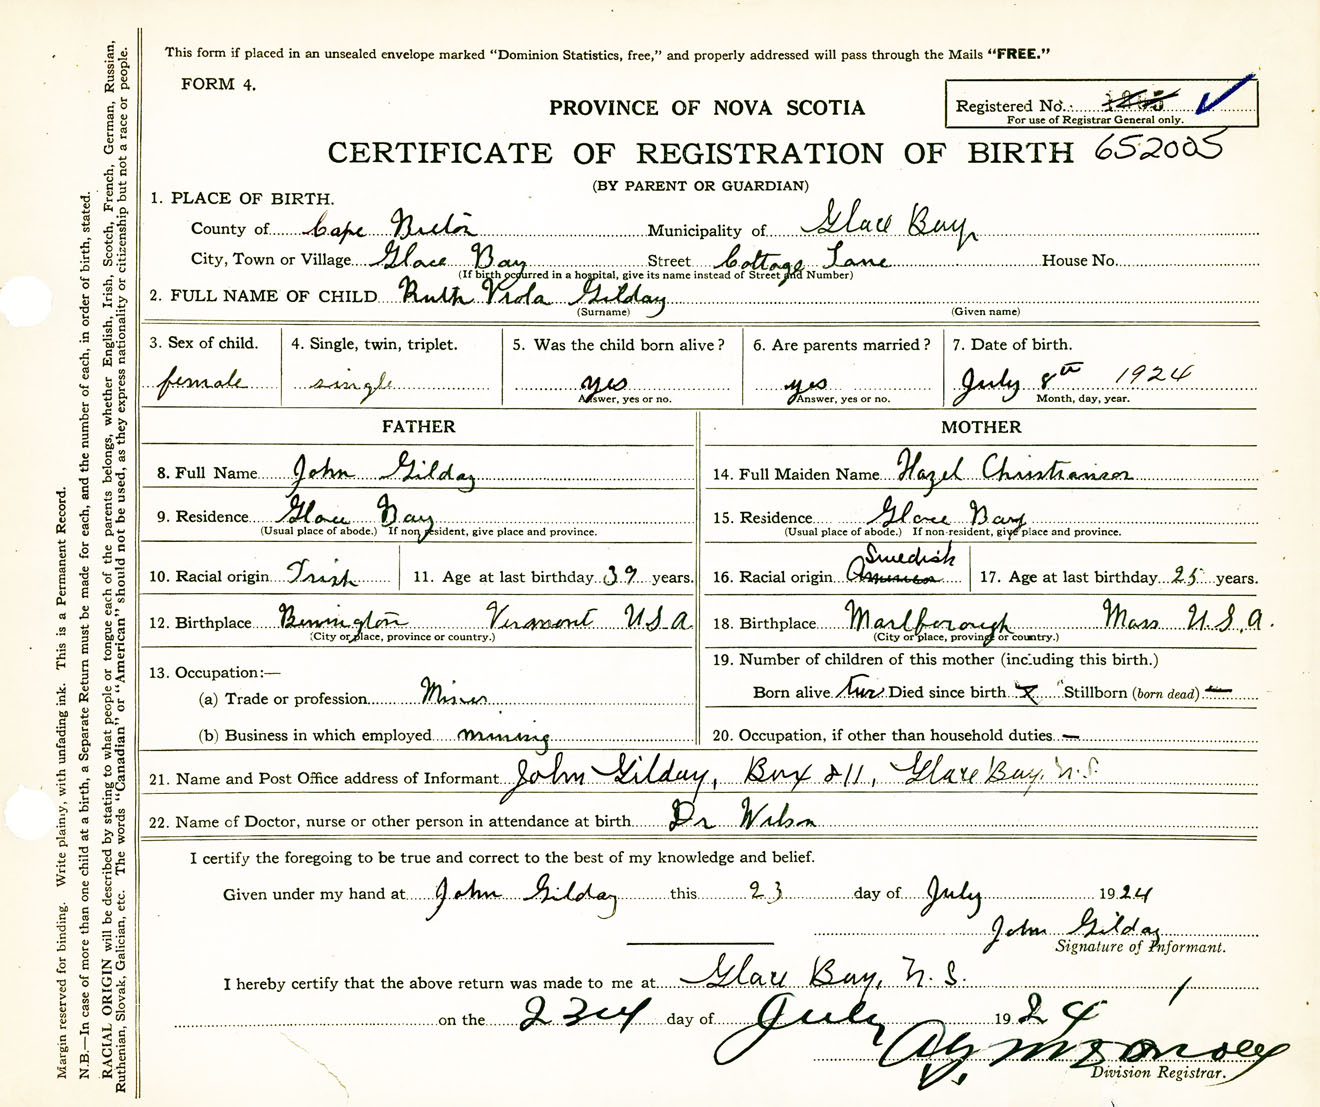 This form if placed in an unsealed envelope marked "Dominion Statistics, free," and properly addressed will pass through the Mails "FREE."
FORM 4.
PROVINCE OF NOVA SCOTIA
Registered No.
For use of Registrar General only.
CERTIFICATE OF REGISTRATION OF BIRTH 652005
(BY PARENT OR GUARDIAN)
1. PLACE OF BIRTH.
County of Cape Breton Municipality of Glace Bay
City, Town or Village Glace Bay Street Cottage Lane House No.
(If birth occurred in a hospital, give its name instead of Street and Number)
2. FULL NAME OF CHILD Ruth Viola Gilday
(Surname) (Given name)
3. Sex of child. 4. Single, twin, triplet. 5. Was the child born alive? 6. Are parents married? 7. Date of birth.
female single yes yes July 8th 1924
Answer, yes or no. Answer, yes or no. Month, day, year.
FATHER MOTHER
8. Full Name John Gilday 14. Full Maiden Name Hazel Christianson
9. Residence Glace Bay 15. Residence Glace Bay
(Usual place of abode.) If non resident, give place and province. (Usual place of abode.) If non-resident, give place and province.
Swedish
10. Racial origin Irish 11. Age at last birthday 39 years. 16. Racial origin 17. Age at last birthday 25 years.
12. Birthplace Bennington Vermont U.S.A 18. Birthplace Marlborough Mass U.S.A.
(City or place, province or country.) (City or place, province or country.)
19. Number of children of this mother (including this birth.)
13. Occupation:—
(a) Trade or profession Miner Born alive two Died since birth x Stillborn (born dead) —
(b) Business in which employed mining 20. Occupation, if other than household duties —
21. Name and Post Office address of Informant John Gilday, Box 811, Glace Bay, N.S.
22. Name of Doctor, nurse or other person in attendance at birth Dr Wilson
I certify the foregoing to be true and correct to the best of my knowledge and belief.
Given under my hand at John Gilday this 23 day of July 1924
John Gilday
Signature of Informant.
I hereby certify that the above return was made to me at Glace Bay, N.S.
on the 23rd day of July 1924
Division Registrar.
Margin reserved for binding. Write plainly, with unfading ink. This is a Permanent Record.
N.B.—In case of more than one child at a birth, a Separate Return must be made for each, and the number of each, in order of birth, stated.
RACIAL ORIGIN will be described by stating to what people or tongue each of the parents belongs, whether English, Irish, Scotch, French, German, Russian,
Ruthenian, Slovak, Galician, etc. The words "Canadian" or "American" should not be used, as they express nationality or citizenship but not a race or people.